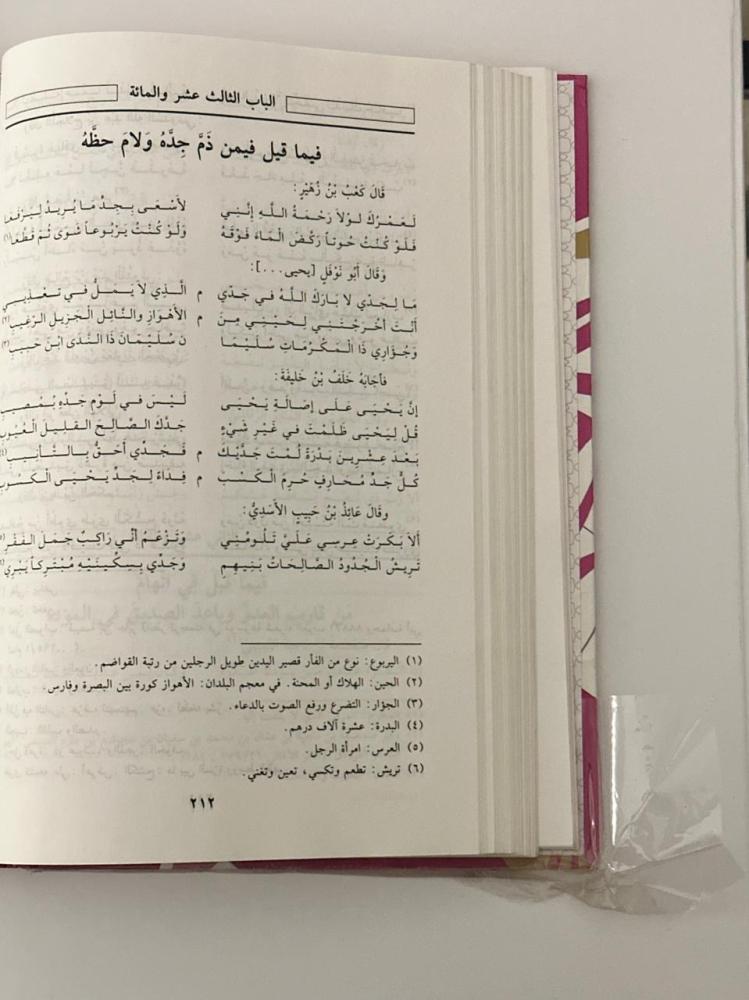 الباب الثالث عشر والمائة
فيما قيل فيمن ذَمَّ جِدَّهُ وَلامَ حظَّهُ
قَالَ كَعْبُ بْنُ زُهَيْرٍ:
لَعَمْرُكَ لَوْلاَ رَحْمَةُ اللَّهِ إِنَّنِي لأَسْعَى بِجِدٍّ مَا يُرِيدُ لِيَرْفَعَا
فَلَوْ كُنْتُ حُوتاً رَكَضَ الْمَاءُ فَوْقَهُ وَلَوْ كُنْتُ يَرْبُوعاً شَوَى ثُمَّ قَطَّعَا(١)
وَقَالَ أَبُو نَوْفَلٍ [يحيى ...]:
مَا لِجَدِّي لا بَارَكَ اللَّهُ فِي جَدِّي م الَّذِي لاَ يَمَلُّ في تَعْذِيبِي
أَنْتَ أَخْرَجْتَنِي لِحَيْنِي مِنَ م الأَهْوَازِ والنَّائِلِ الْجَزِيلِ الرَّغِيبِ(٢)
وَجُؤَارِي ذَا الْمَكْرُمَاتِ سُلَيْمَا نَ سُلَيْمَانَ ذَا النَّدَى ابْنَ حَبِيبِ(٣)
فأجَابَهُ خَلَفُ بْنُ خَلِيفَةَ:
إِنَّ يَحْيَى عَلَى إِصَالَةِ يَحْيَى لَيْسَ في لَوْمِ جَدِّهِ بِمُصِيبِ
قُلْ لِيَحْيَى ظَلَمْتَ في غَيْرِ شَيْءٍ جَدَّكَ الصَّالِحَ القَلِيلَ الْعُيُوبِ
بَعْدَ عِشْرِينَ بَدْرَةً لُمْتَ جَدَّيْكَ م فَجَدِّي أَحَقُّ بِالتَّأْنِيبِ(٤)
كُلُّ جَدٍّ مُحَارِفٍ حُرِمَ الْكَسْبَ م فِدَاءٌ لِجَدِّ يَحْيَى الْكَسُوبِ
وقَالَ عَائِذُ بْنُ حَبِيبٍ الأَسَدِيُّ:
أَلاَ بَكَرَتْ عِرْسِي عَلَيَّ تَلُومُنِي وَتَزْعُمُ أَنِّي رَاكِبٌ جَمَلَ الفَقْرِ(٥)
تَرِيشُ الْجُدُودُ الصَّالِحَاتُ بَنِيهِمِ وَجَدِّي بِسِكِّينَيْهِ مُبْتَرِكاً يَبْرِي(٦)
(١) اليربوع: نوع من الفأر قصير اليدين طويل الرجلين من رتبة القواضم.
(٢) الحين: الهلاك أو المحنة. في معجم البلدان: الأهواز كورة بين البصرة وفارس.
(٣) الجؤار: التضرع ورفع الصوت بالدعاء.
(٤) البدرة: عشرة آلاف درهم.
(٥) العرس: امرأة الرجل.
(٦) تريش: تطعم وتكسي، تعين وتغني.
٢١٢